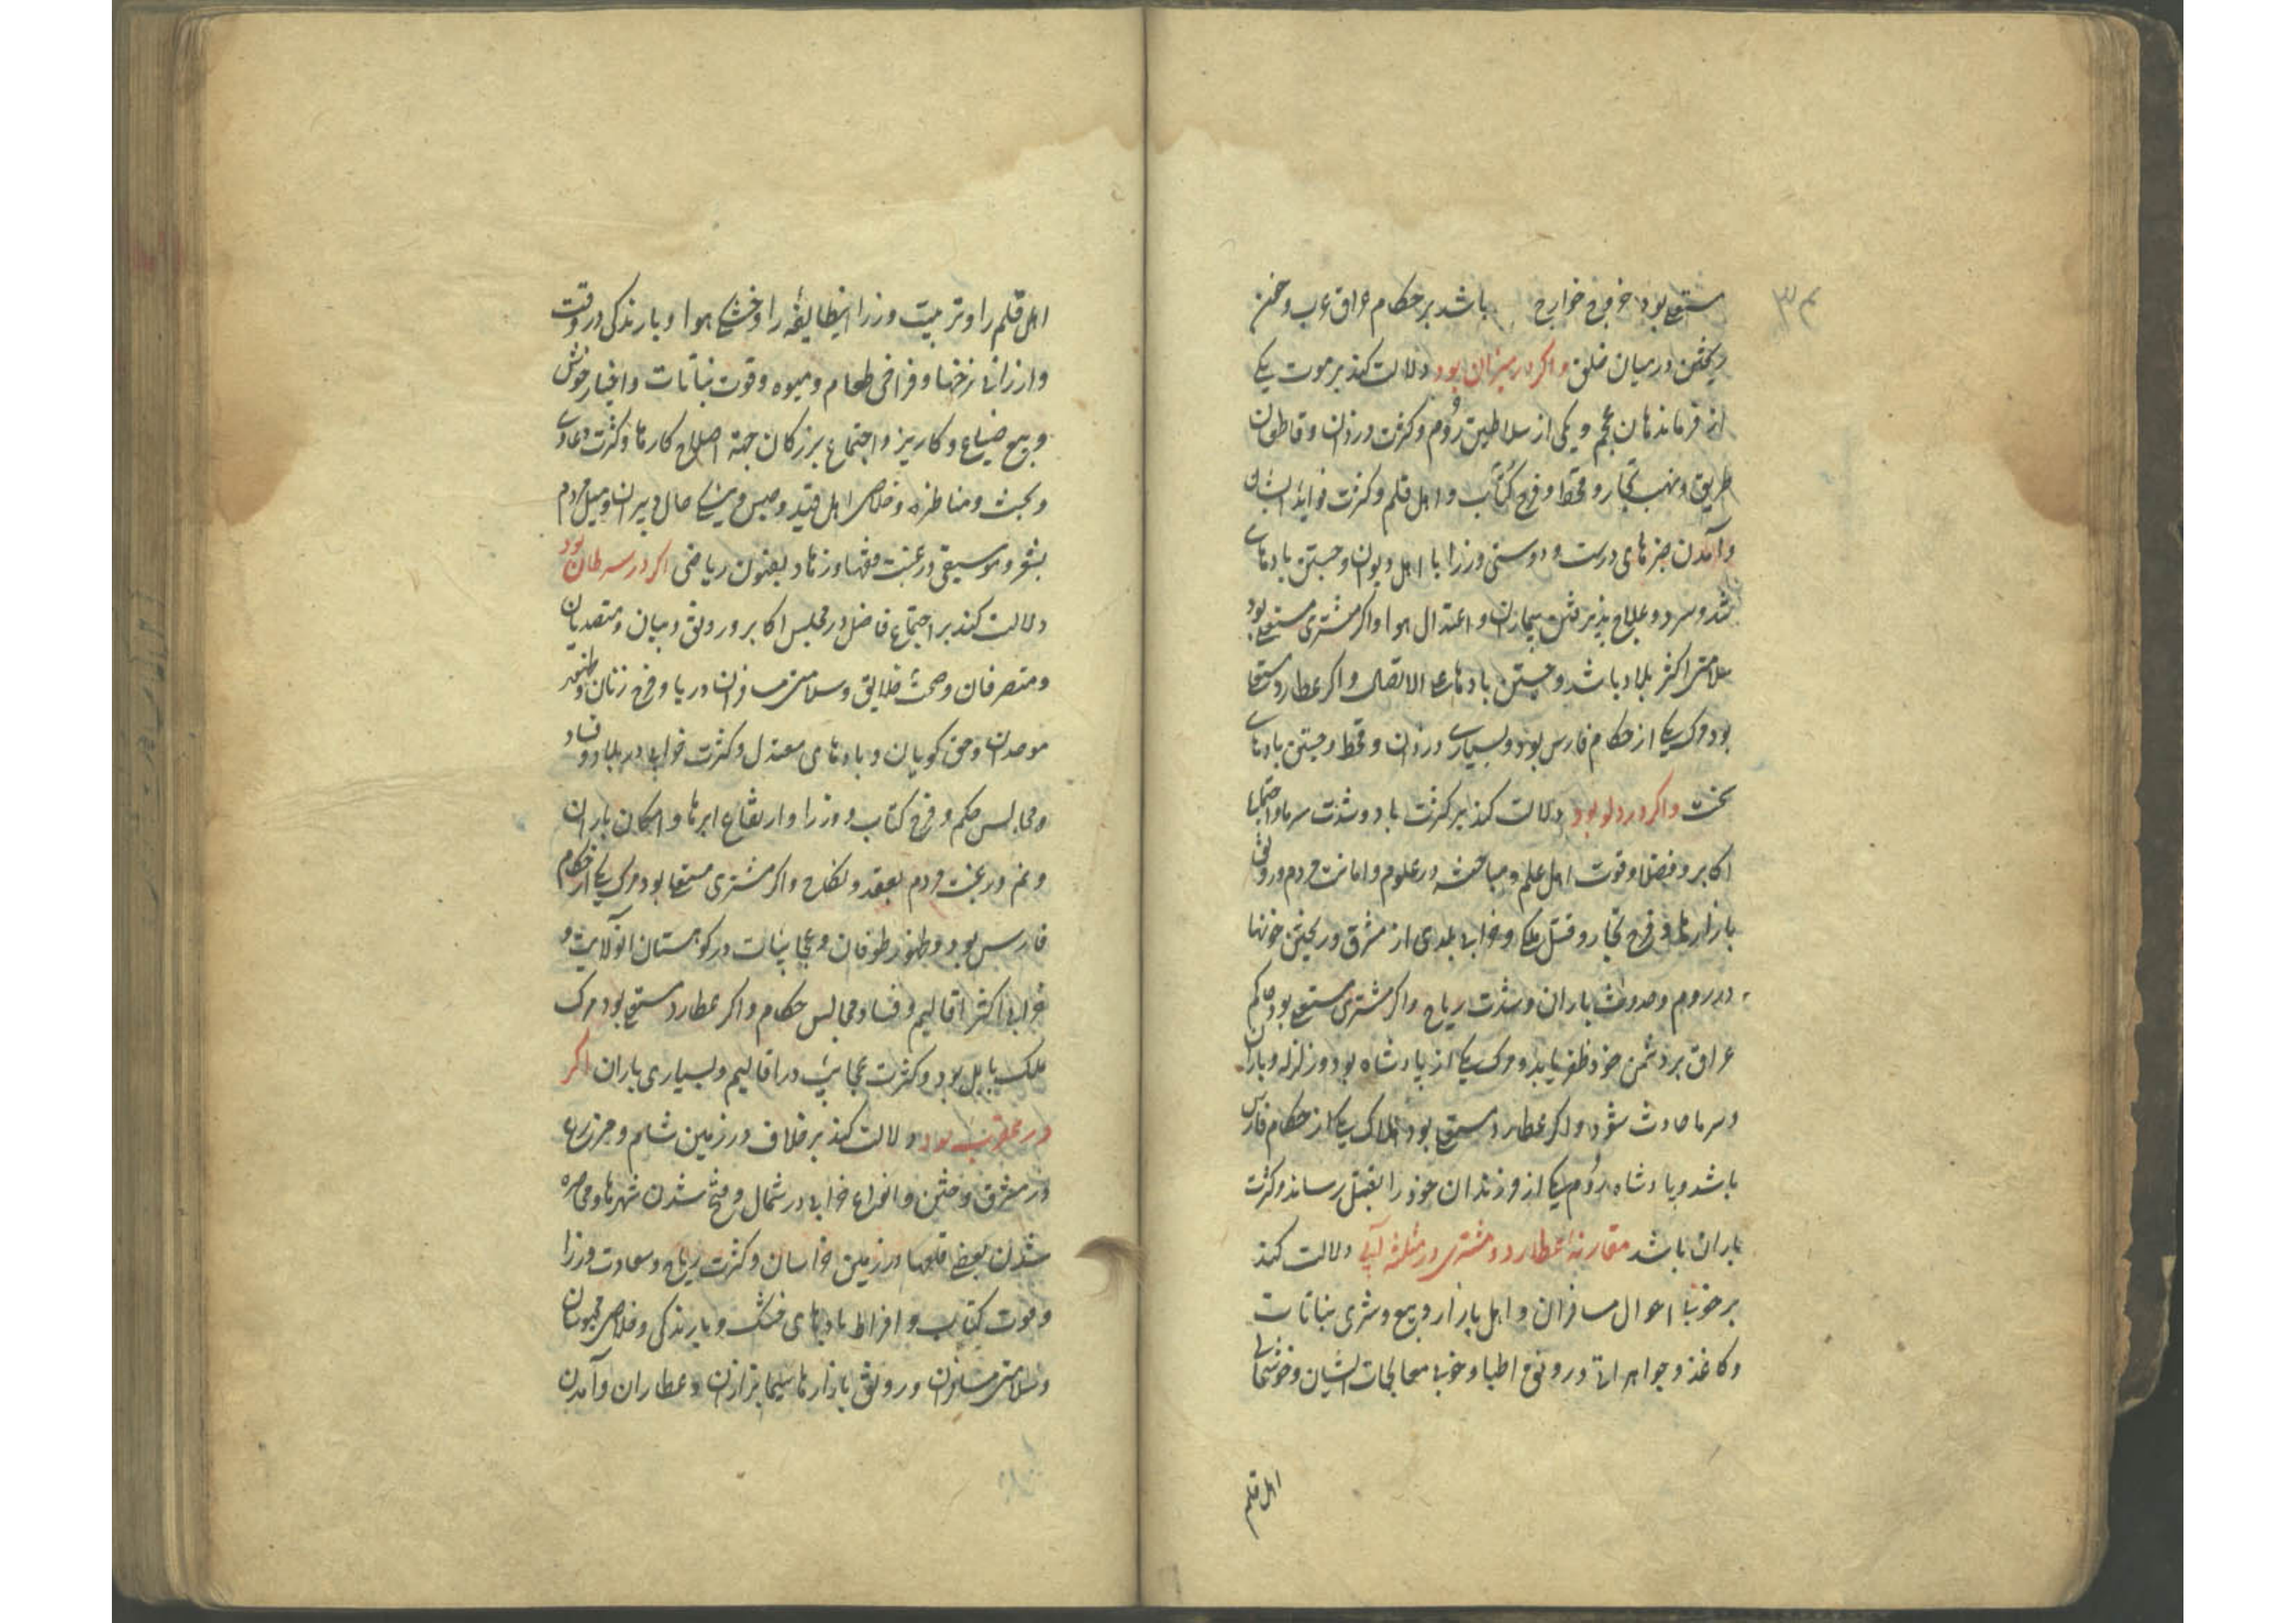 مستعلی بود خروج خوارج باشد بر حکام عراق عرب و خون
ریختن در میان خلق واکر در میزان بود دلالت کند بر موت یکی
از فرماندهان عجم و یکی از سلاطین روم و کثرت دزدان و قاطعان
طریق و نهب تجار و قحط و فرح کتاب و اهل قلم و کثرت فواید ایشان
وآمدن خبرهای درست و دوستی وزرا با اهل دیوان و جستن بادهای
تند و سرد و علاج پذیرفتن بیماران و اعتدال هوا واکر مشتری مستعلی بود
سلامتی اکثر بلاد باشد و جستن بادها علی الاتصال واکر عطارد مستعلی
بود مرک یکی از حکام فارس بود و بسیاری دزدان و قحط و جستن بادهای
سخت واکر در دلو بود دلالت کند بر کثرت باد و شدت سرما و اجتماع
اکابر و فضلا و قوت اهل علم و مباحثه در علوم و امانت مردم و رونق
بازارها و فرح تجار و قتل ملکی و خرابی بلدی از مشرق و ریختن خونها
در روم و حدوث باران و شدت ریاح واکر مشتری مستعلی بود حاکم
عراق بر دشمن خود ظفر یابد و مرک یکی از پادشاه بود و زلزله و باران
و سرما حادث شود واکر عطارد مستعلی بود هلاک یکی از حکام فارس
باشد و پادشاه روم یکی از فرزندان خود را بقتل رساند و کثرت
باران باشد مقارنه عطارد و مشتری در مثلثه آبی دلالت کند
بر خوبی احوال مسافران و اهل بازار و بیع و شری نباتات
و کاغذ و جواهر و رونق اطبا و خوبی معالجات ایشان و خوشحالی
اهل قلم
اهل قلم را و تربیت وزرا اینطایفه را و خشکی هوا و بارندکی در وقت
وارزانی نرخها و فراخی طعام و میوه و قوت نباتات و اخبار خوش
و بیع ضیاع و کاریز و اجتماع بزرکان جهة اصلاح کارها و کثرت دعاوی
و بحث و مناظره و خلاصی اهل قید و حبس و نیکی حال دبیران و میل مردم
بشعر و موسیقی و رغبت فقها و زهاد بفنون ریاضی اکر در سرطان بود
دلالت کند بر اجتماع فاضل در مجلس اکابر و رونق دبیان و متصدیان
و متصرفان و صحت خلایق و سلامتی مسافران دریا و فرح زنان و
موحدان و حق کویان و بادهای معتدل و کثرت خرابی در بلاد و فساد
و مجالس حکم و فرح کتاب و وزرا و ارتفاع ابرها و امکان باران
و نم و رغبت مردم بعقد و نکاح واکر مشتری مستعلی بود مرک یکی از حکام
فارس بود و ظهور طوفان و عجایبات در کوهستان آنولایت و
خرابی اکثر اقالیم و فساد مجالس حکام واکر عطارد مستعلی بود مرک
ملک بابل بود و کثرت عجایب در اقالیم و بسیاری باران اکر
در عقرب بود دلالت کند بر خلاف در زمین شام و حرب
در مشرق و فتن و انواع خرابی در شمال و فتح شدن شهرها و محاصره
شدن بعضی قلعها در زمین خراسان و کثرت ریاح و سعادت وزرا
و موت کتاب و افراط بادهای خنک و بارندکی و خلاصی محبوسان
و سلامتی مسافران و رونق بازارها سیما بزازان و عطاران وآمدن